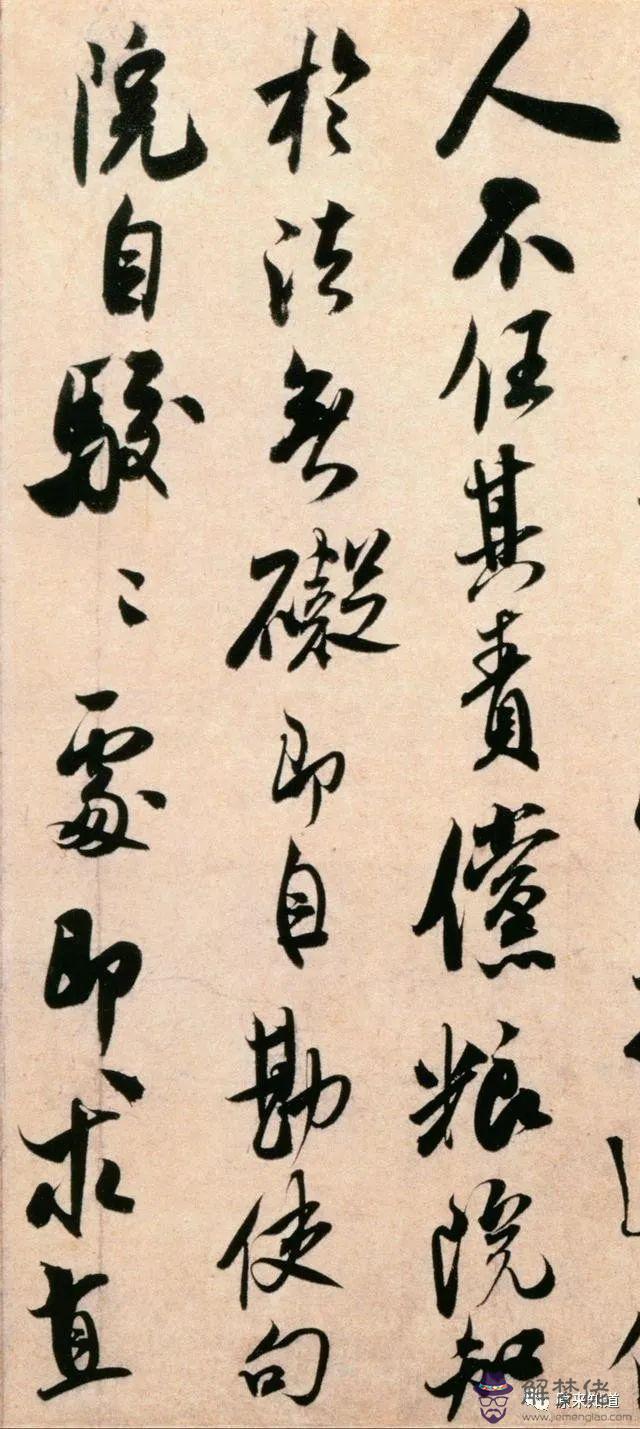 人不任其責儻粮院知
於法無礙即自勘使句
院自駮〻處即求直
解梦佬
原来知道
www.jiemenglao.com